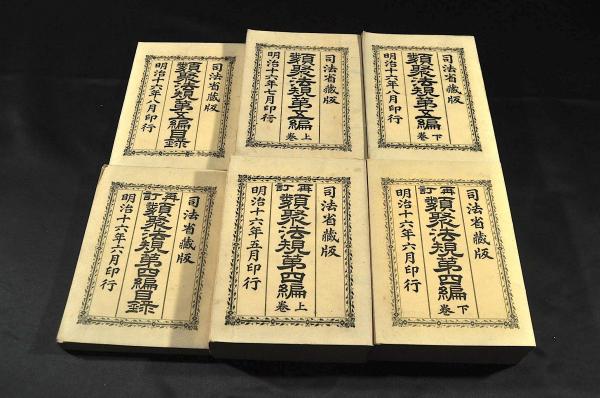 司法省蔵版
類聚法規第五編目録
明治十六年八月印行
司法省蔵版
類聚法規第五編 上巻
明治十六年七月印行
司法省蔵版
類聚法規第五編 下巻
明治十六年八月印行
司法省蔵版
再訂 類聚法規第四編目録
明治十六年六月印行
司法省蔵版
再訂 類聚法規第四編 上巻
明治十六年五月印行
司法省蔵版
再訂 類聚法規第四編 下巻
明治十六年六月印行